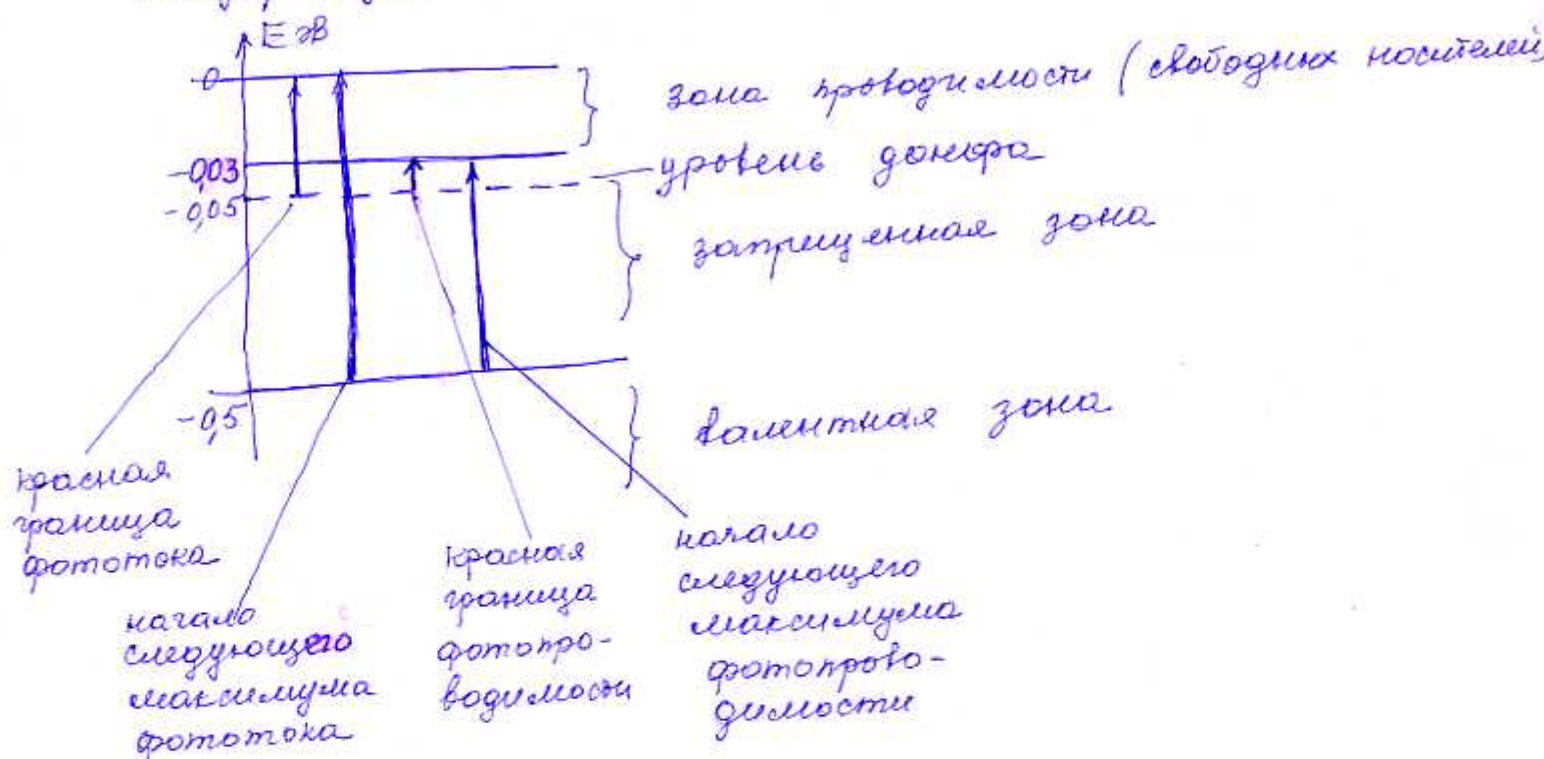 E эВ
0
зона проводимости (свободных носителей)
-0,03
уровень донора
-0,05
запрещенная зона
-0,5
валентная зона
красная
граница
фототока
начало
следующего
максимума
фототока
красная
граница
фотопро-
водимости
начало
следующего
максимума
фотопрово-
димости